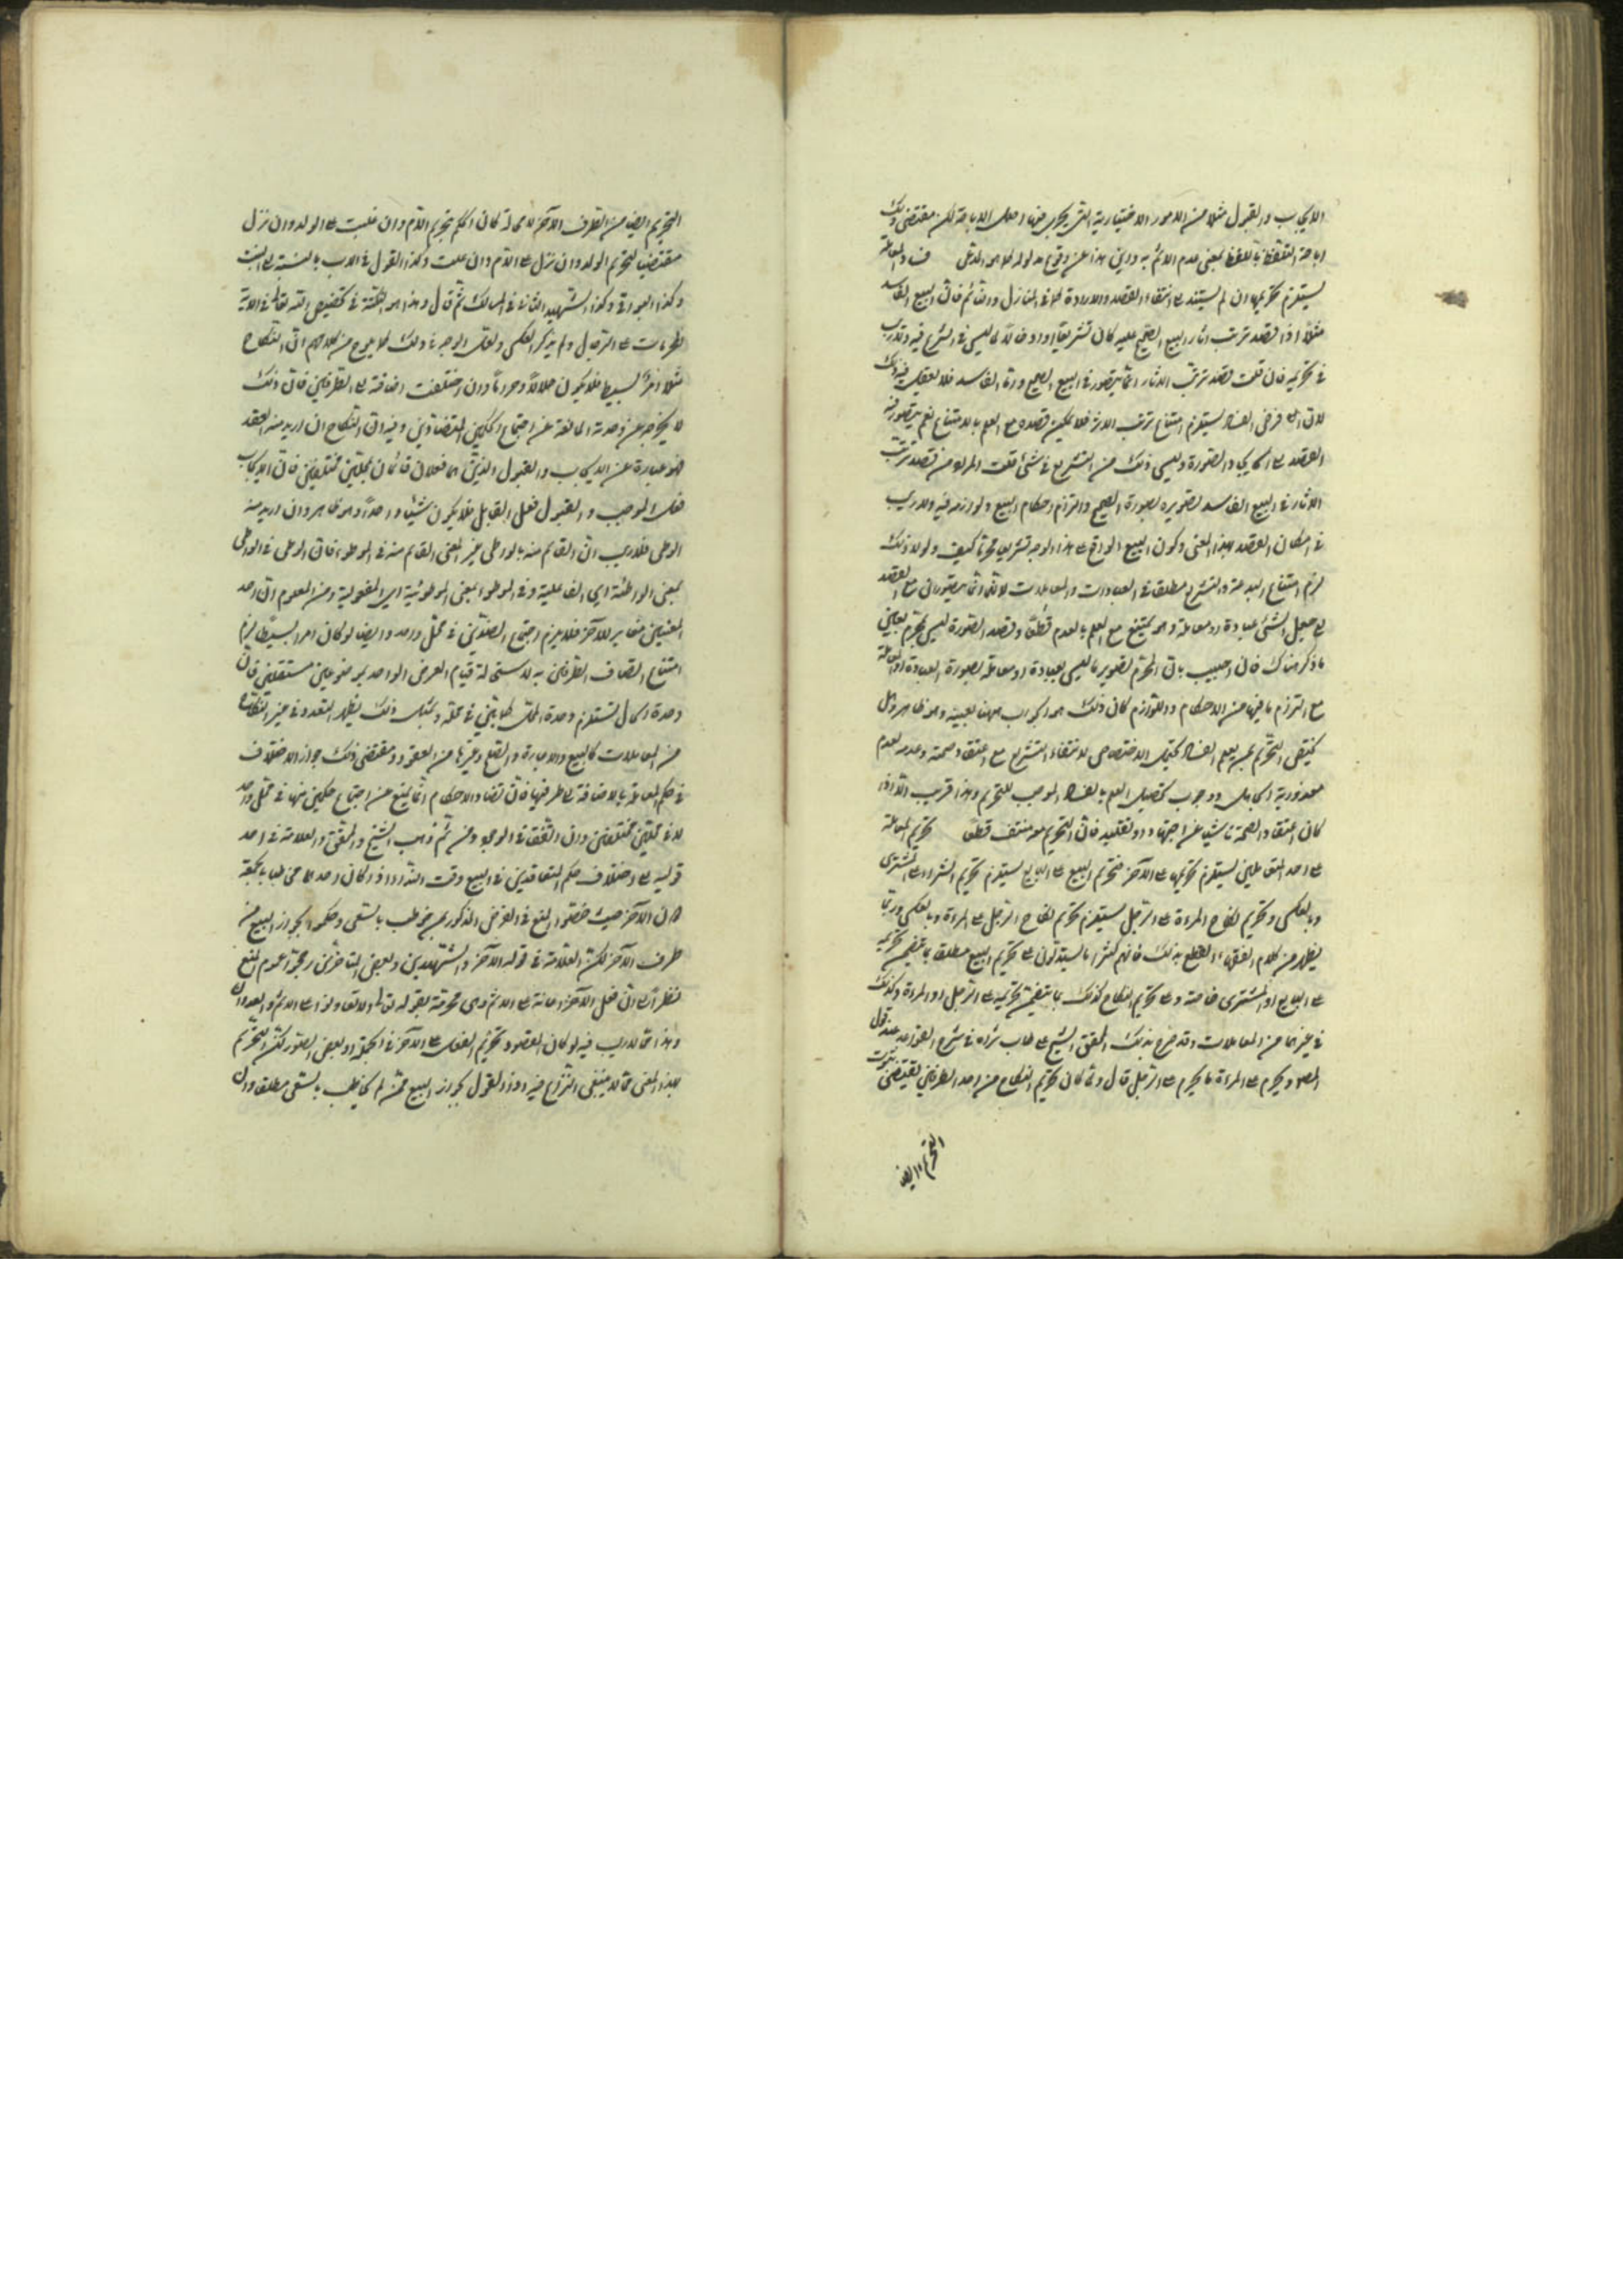 الايجاب والقبول مثلا من الامور الاختيارية التى يجرى فيها اصل الاباحة لكن مقتضى ذلك
اباحة التلفظ باللفظ بمعنى عدم الاثم به واين هذا عن وقوع مدلوله كما هو المدعى فساد المعاملة
يستلزم تحريمها ان لم يستند الى انتفاء القصد والارادة كما فى الهازل والنائم فان البيع الفاسد
مثلا اذا قصد ترتب اثار البيع الصحيح عليه كان تشريعا وادخالا لما ليس فى الشرع فيه ولا ريب
فى تحريمه فان قلت قصد ترتب الاثار انما يتصور فى البيع الصحيح واما الفاسد فلا يعقل فيه ذلك
لان فرض الفساد يستلزم امتناع ترتب الاثر فلا يمكن قصده مع العلم بالامتناع نعم يتصور فيه
القصد الى الايجاد والصورة وليس ذلك من التشريع فى شئ قلت المراد من قصد ترتب
الاثار فى البيع الفاسد تصويره بصورة الصحيح والتزام احكام البيع ولوازمه فيه ولا ريب
فى امكان القصد بهذا المعنى وكون البيع الواقع على هذا الوجه تشريعا محرما كيف ولولا ذلك
لزم امتناع البدعة والتشريع مطلقا فى العبادات والمعاملات لانهما انما يتصوران مع القصد
الى جعل الشئ عبادة او معاملة وهو يمتنع مع العلم بالعدم قطعا وقصد الصورة ليس بمحرم بعين
ما ذكر هناك فان اجيب بان المحرم تصوير ما ليس بعبادة او معاملة بصورة العبادة او المعاملة
مع التزام ما فيها من الاحكام واللوازم كان ذلك هو الجواب ههنا بعينه وهو ظاهر وهل
يختص التحريم بمن يعلم الفساد يحتمل الاختصاص لانتفاء التشريع مع اعتقاد صحته وعدمه لعدم
معذورية الجاهل ووجوب تحصيل العلم بالفساد الموجب للتحريم وهذا قريب الا اذا
كان اعتقاد الصحة ناشيا عن اجتهاد او تقليد فان التحريم منتف قطعا تحريم المعاملة
على احد المتعاملين يستلزم تحريمها على الآخر فتحريم البيع على البايع يستلزم تحريم الشراء على المشترى
وبالعكس وتحريم نكاح المراة على الرجل يستلزم تحريم نكاح الرجل على المراة وبالعكس وربما
يظهر من كلام الفقهاء القطع بذلك فانهم كثيرا ما يستدلون على تحريم البيع مطلقا بما يتضمن تحريمه
على البايع او المشترى خاصة وعلى تحريم النكاح كذلك بما يتضمن تحريمه على الرجل او المراة وكذلك
فى غيرهما من المعاملات وقد صرح بذلك المحقق الشيخ على طاب ثراه فى شرح القواعد عند قول
المص ويحرم على المراة ما يحرم على الرجل قال ولما كان تحريم النكاح من احد الطرفين يقتضى ثبوت
التحريم ايضا
التحريم ايضا من الطرف الآخر لا محالة كان الحكم بتحريم الام وان علت على الولد وان نزل
مقتضيا لتحريم الولد وان نزل على الام وان علت وكذا القول فى الاب بالنسبة الى البنت
وكذا البواقى وكذا الشهيد الثانى فى المسالك ثم قال وهذا هو النكتة فى تخصيص الله تعالى فى الآية
المحرمات على الرجال ولم يذكر العكس ولعل الوجه فى ذلك كما يلوح من كلامهم ان النكاح
مثلا امر بسيط فلا يكون حلالا وحراما وان اختلفت اضافته الى الطرفين فان ذلك
لا يخرجه عن وحدته المانعة عن اجتماع الحكمين المتضادين وفيه ان النكاح ان اريد منه العقد
فهو عبارة عن الايجاب والقبول الذين هما فعلان قائمان بمحلين مختلفين فان الايجاب
فعل الموجب والقبول فعل القابل فلا يكون شيئا واحدا وهو ظاهر وان اريد منه
الوطى فلا ريب ان القائم منه بالواطى غير المعنى القائم منه فى الموطوء فان الوطى فى الواطى
بمعنى الواطئية اى الفاعلية وفى الموطوء بمعنى الموطوئية اى المفعولية ومن المعلوم ان احد
المعنيين مغاير للآخر فلا يلزم اجتماع الضدين فى محل واحد وايضا لو كان امرا بسيطا لزم
امتناع اتصاف الطرفين به لاستحالة قيام العرض الواحد بموضوعين مستقلين فان
وحدة الحال تستلزم وحدة المحل كما بين فى محله وبمثل ذلك يظهر التعدد فى غير النكاح
من المعاملات كالبيع والاجارة والصلح وغيرها من العقود ومقتضى ذلك جواز الاختلاف
فى حكم المعاملة بالاضافة الى طرفيها فان تضاد الاحكام انما يمنع عن اجتماع حكمين منها فى محل واحد
لا فى محلين مختلفين وان اتفقا فى الوجود ومن ثم ذهب الشيخ والمحقق والعلامة فى احد
قوليه الى اختلاف حكم المتعاقدين فى البيع وقت النداء اذا كان احدهما مخاطبا بالجمعة
دون الآخر حيث خصوا المنع فى الفرض المذكور بمن خوطب بالسعى وحكموا بجواز البيع من
طرف الآخر لكن العلامة فى قوله الآخر والشهيدين وبعض المتاخرين رجحوا عموم المنع
نظرا الى ان فعل الآخر اعانة على الاثم وهى محرمة بقوله تعالى ولا تعاونوا على الاثم والعدوان
وهذا مما لا ريب فيه لو كان المقصود تحريم الفعل على الآخر فى الجملة او بعض الصور لكن التحريم
بهذا المعنى مما لا ينبغى النزاع فيه اذ القول بجواز البيع ممن لم يخاطب بالسعى مطلقا وان